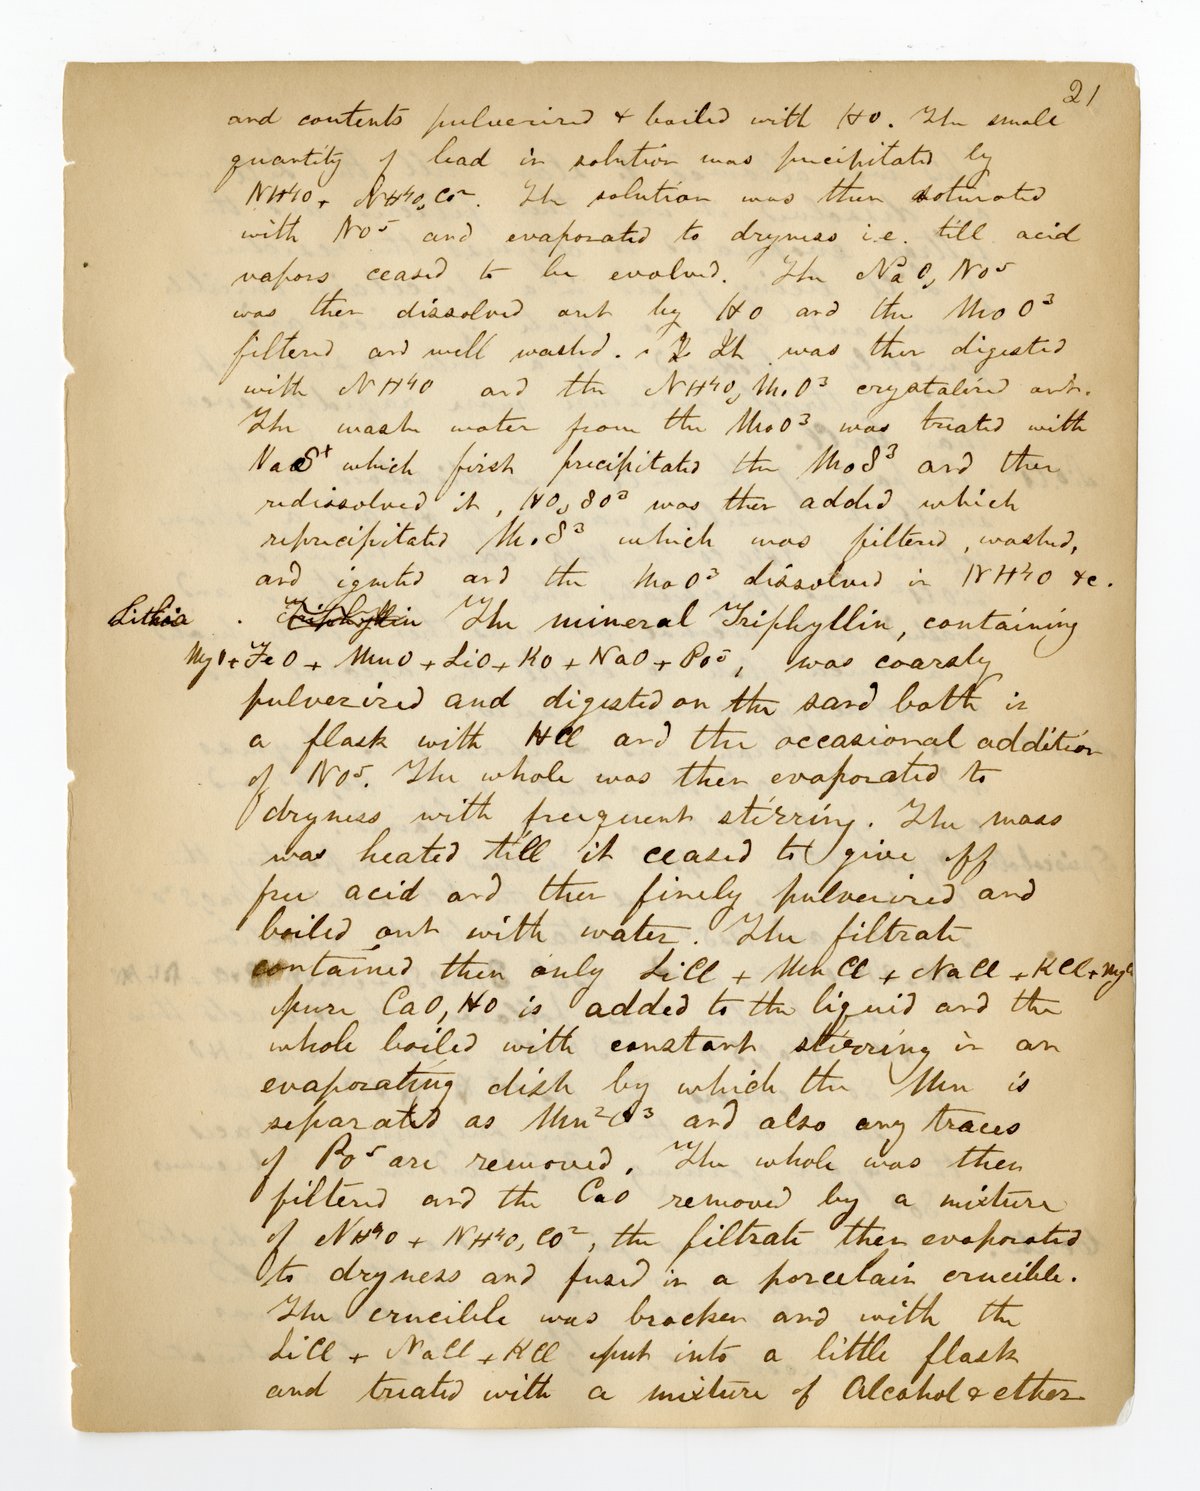 21
and contents pulverized & boiled with HO. The small
quantity of lead in solution was precipitated by
NH4O + NH4O, CO2. The solution was then saturated
with NO5 and evaporated to dryness i.e. till acid
vapors ceased to be evolved. The NaO, NO5
was then dissolved out by HO and the MoO3
filtered and well washed. It was then digested
with NH4O and the NH4O, MoO3 crystalized out.
The wash water from the MoO3 was treated with
which first precipitated the MoS3 and then
redissolved it, HO, SO3 was then added which
reprecipitated MoS3 which was filtered, washed,
and ignited and the MoO3 dissolved in NH4O &c.
Lithia . Triphyllin The mineral Triphyllin, containing
MgO + FeO + MnO + LiO + KO + NaO + PO5, was coarsly
pulverized and digested on the sand bath in
a flask with HCl and the occasional addition
of NO5. The whole was then evaporated to
dryness with frequent stirring. The mass
was heated till it ceased to give off
free acid and then finely pulverized and
boiled out with water. The filtrate
contained then only LiCl + MnCl + NaCl + KCl + MgCl
pure CaO, HO is added to the liquid and the
whole boiled with constant stirring in an
evaporating dish by which the Mn is
separated as Mn2O3 and also any traces
of PO5 are removed. The whole was then
filtered and the CaO removed by a mixture
of NH4O + NH4O, CO2, the filtrate then evaporated
to dryness and fused in a porcelain crucible.
The crucible was brocken and with the
LiCl + NaCl + KCl put into a little flask
and treated with a mixture of Alcohol & ether